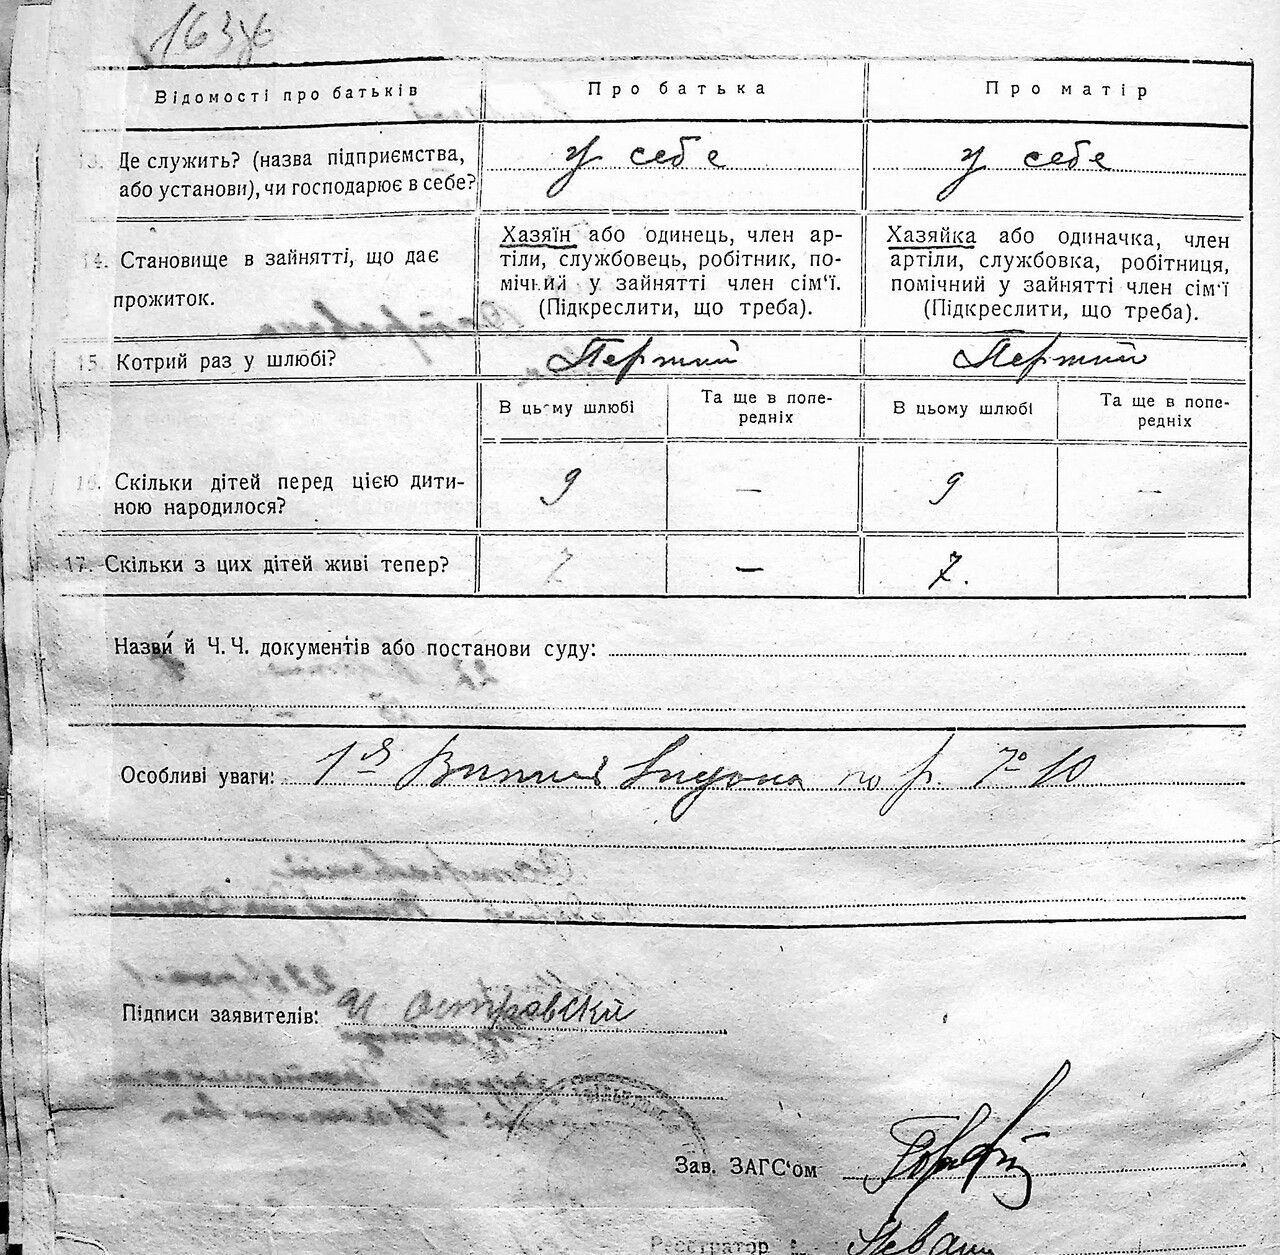 Відомості про батьків Про батька Про матір
13. Де служить? (назва підприємства, У себе У себе
або установи), чи господарює в себе?
Хазяїн або одинець, член ар- Хазяйка або одиначка, член
14. Становище в зайнятті, що дає тіли, службовець, робітник, по- артіли, службовка, робітниця,
прожиток. мічний у зайнятті член сім'ї. помічний у зайнятті член сім'ї
(Підкреслити, що треба). (Підкреслити, що треба).
15. Котрий раз у шлюбі? Перший Перший
В цьому шлюбі Та ще в попе- В цьому шлюбі Та ще в попе-
редніх редніх
16. Скільки дітей перед цією дити- 9 — 9 —
ною народилося?
17. Скільки з цих дітей живі тепер? 7 — 7.
Назви й Ч. Ч. документів або постанови суду:
Особливі уваги: по р. № 10
Підписи заявителів: Островски
Зав. ЗАГС'ом
Реєстратор: